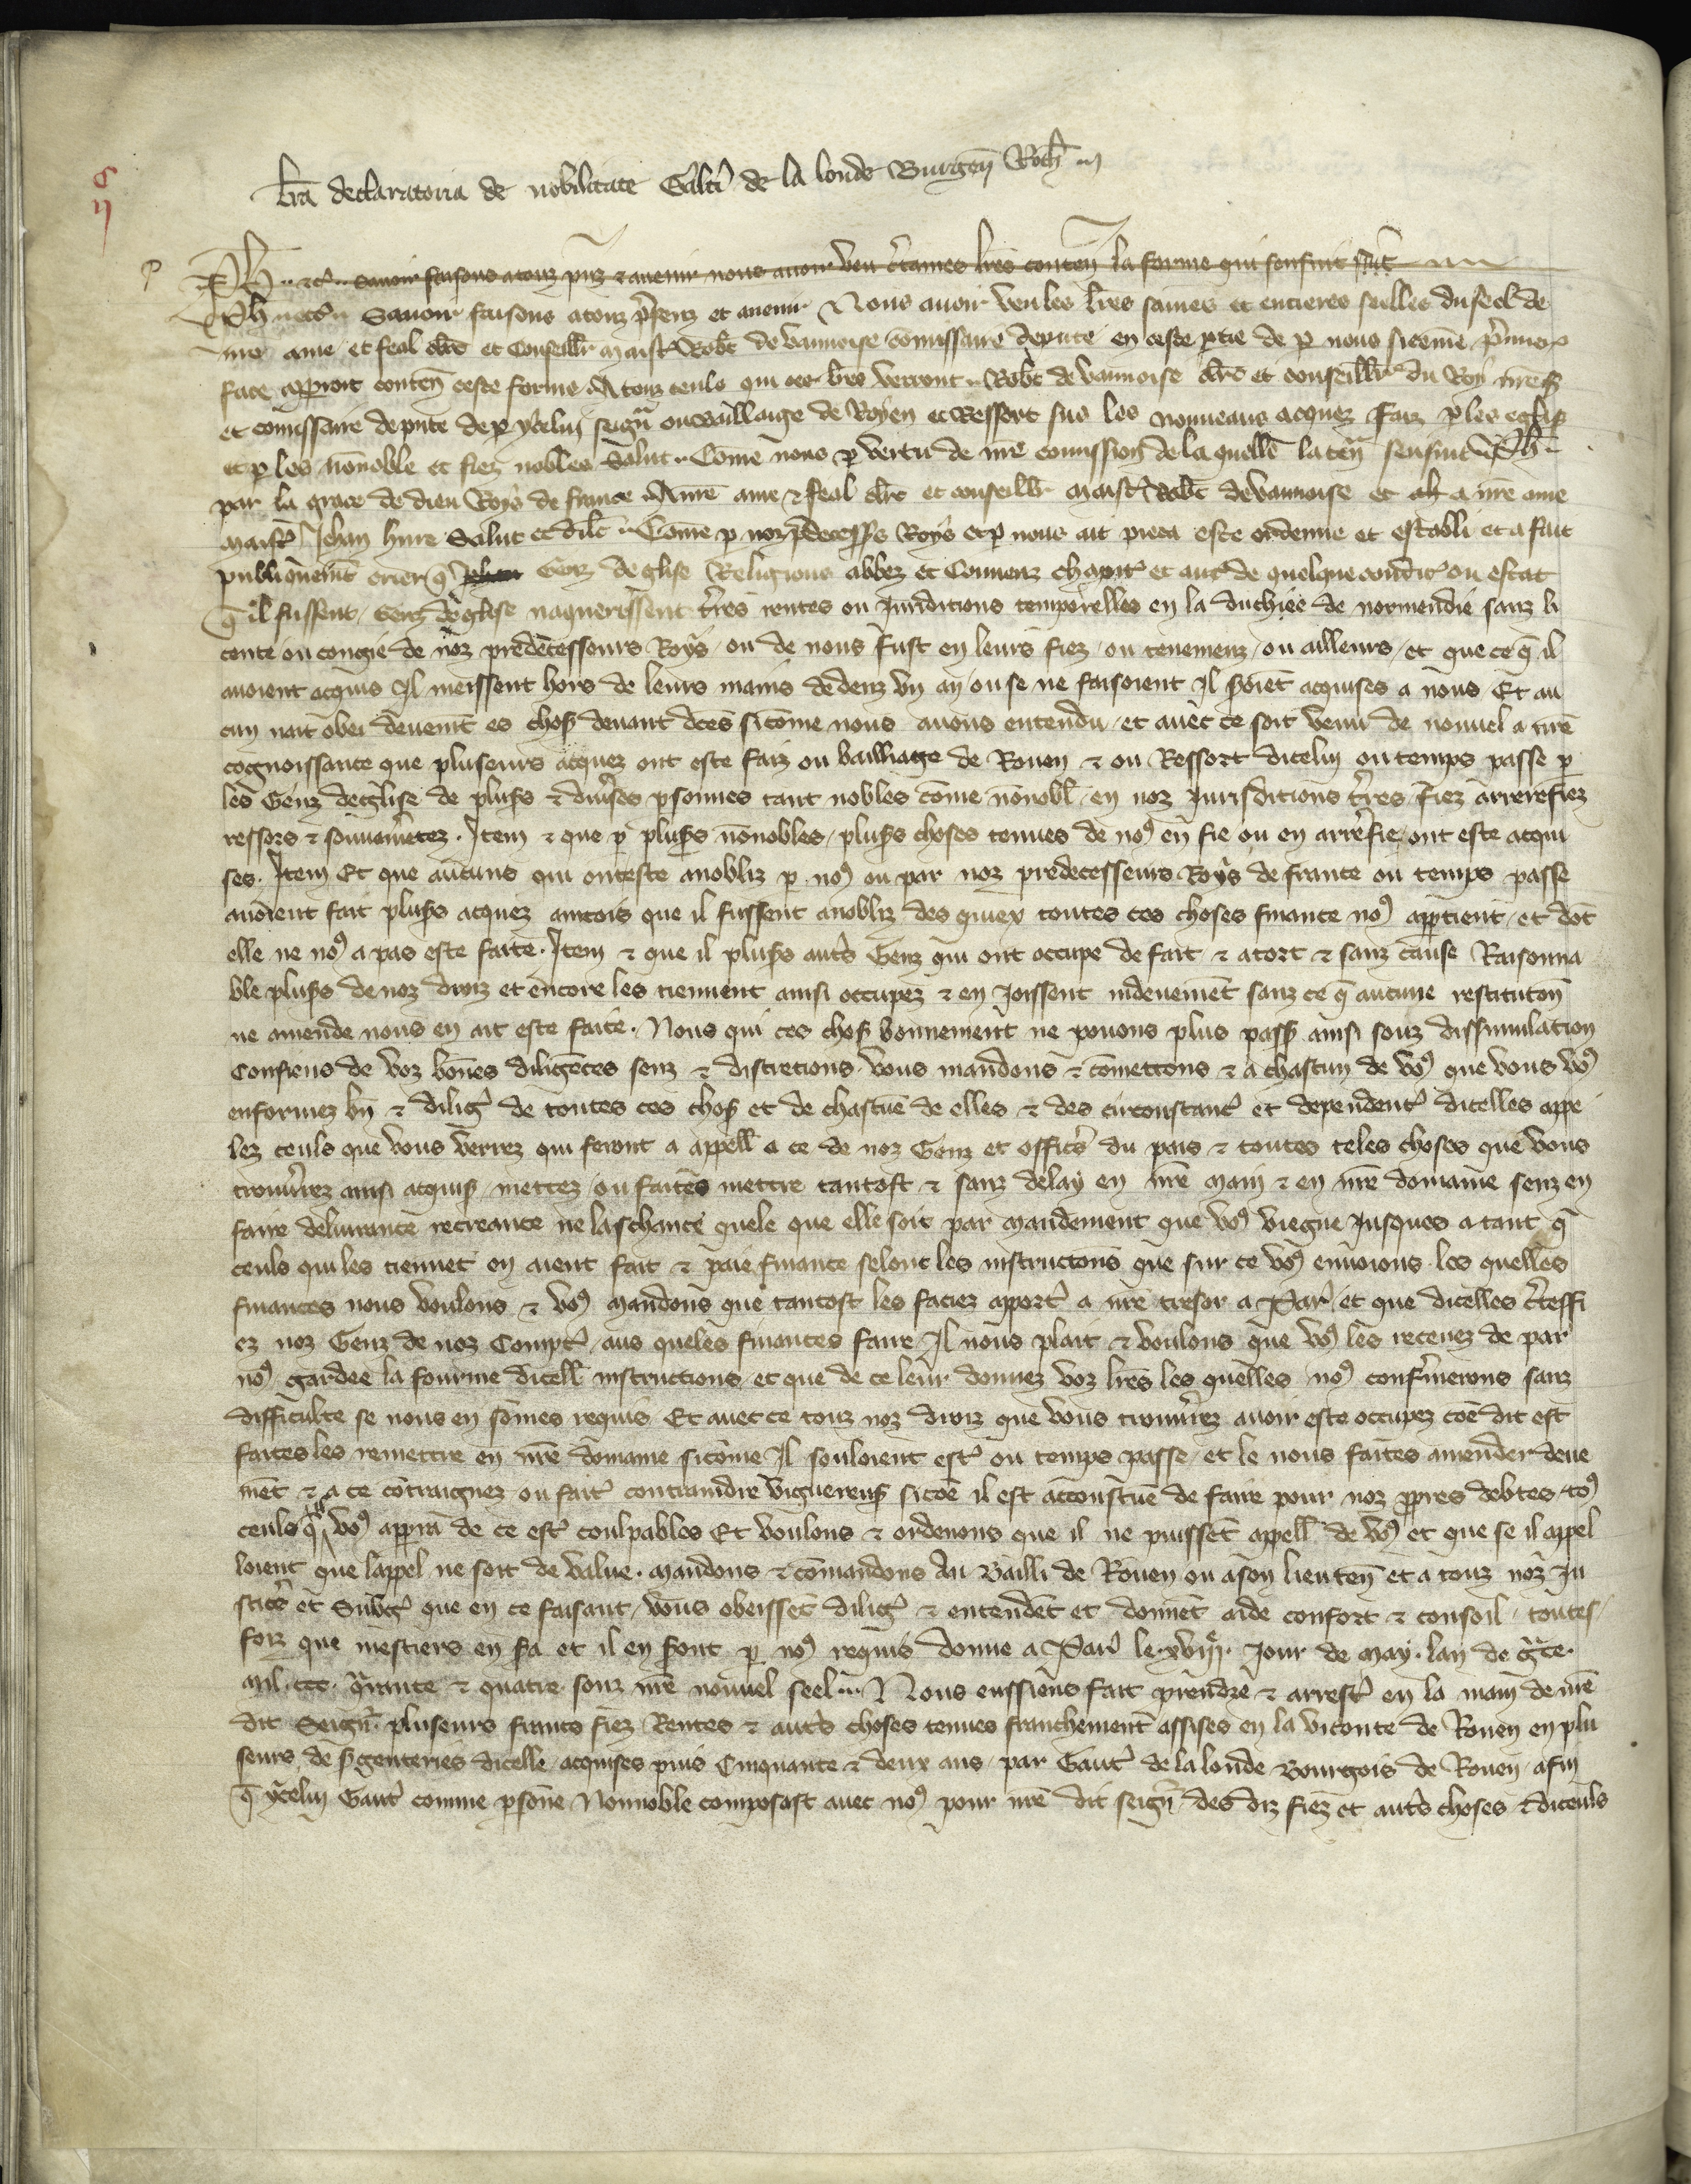 c
ii
lra declaratoria de nobilitate Galtī de la londe Burgeñ Roth
Ph etc Savoir faisons a touz pñz & avenir nous avoir veu ctaines lres conteñ la forme qui sensuit
Ph etc Savoir faisons a touz psenz et avenir Nous avoir veu les lres saines et entieres seelles du seel de
nre ame et feal clerc et Conseillr maistr Robt de vannoise comissaire depute en ceste ptie de p nous sicome p
face apparoit conteñ ceste forme A touz ceuls qui ces lres verront Robt de vannoise clerc et conseillr du Roy nres
et comissaire depute de p ycelui seignr ou Bailliaige de Royen et Ressort sus les nouveaus acquez faiz p les eglises
et p les nonoble et fiez nobles Salut Come nous p vertu de nre comission de la quelle la teñ sensuit Ph
par la grace de dieu Roys de france A nre ame & feal clerc et conseillr maistr Robt de vannoise et a nre ame
maistr Jehan hure Salut et dilc Come p noz predecesses Roys et p nous ait pieca este ordenne et establi et a fait
publiquement crier q Genz deglise Religious abbez et Couvenz chapitr et autr de quelque conditr ou estat
q il fussent Genz deglise naquerissent tres rentes ou Juriditions temporelles en la duchiee de normendie sanz li
cence ou congie de noz predecesseurs Roys ou de nous fust en leurs fiez ou tenemenz ou ailleurs et que ce q il
avoient acquis Il meissent hors de leurs mains dedenz un an ou se ne faisoient Il seroiet acquises a nous Et au
cun nait obei deuemt es chos devant dces sicome nous avons entendu et avec ce soit venu de nouvel a nre
cognoissance que pluseurs acquez ont este faiz ou bailliage de Rouen & ou Ressort dicelui ou temps passe p
les Genz deglise de pluss & divses psonnes tant nobles come nonobl en noz Jurisditions tres fiez arrerefiez
ressors & souvainetez Item & que p pluss nonobles pluss choses tenues de nos en fie ou en arrefie ont este acqui
ses Item Et que aucuns qui ont este anobliz p nos ou par noz predecesseurs Roys de france ou temps passe
avoient fait pluss acquez aincois que il fussent anobliz des quiex toutes ces choses finance nos apptient et dot
elle ne nos a pas este faite Item & que il pluss auts Genz qui ont occupe de fait & a tort & sanz cause Raisonna
ble pluss de noz droiz et encore les tiennent ainsi occupez & en Joissent indeuement sanz ce q aucune restituton
ne amende nous en ait este faite Nous qui ces chos bonnement ne povons plus pass ainsi souz dissimulation
Confiens de voz bones diligences senz & discretions vous mandons & comettons & a chascun de vos que vous vos
enformez bn & diligr de toutes ces chos et de chascue de elles & des circonstanc et dependenc dicelles appe
lez ceuls que vous verrez qui feront a appell a ce de noz Genz et offics du pais & toutes teles choses que vous
trouvrez ainsi acquis mettez ou faites mettre tantost & sanz delay en nre main & en nre domaine senz en
faire delivrance recreance ne laschance quele que elle soit par mandement que vos viegne Jusques a tant q
ceuls qui les tiennet en aient fait & paie finance selont les instructons que sur ce vos envoions les quelles
finances nous voulons & vos mandons que tantost les faciez aportr a nre tresor a Par et que dicelles cteffi
ez noz Genz de noz Comptr aus queles finances faire Il nous plait & voulons que vos les recevez de par
nos gardee la fourme dicell instructions et que de ce leur donnez voz lres les quelles nos confmerons sanz
difficulte se nous en somes requis Et avec ce touz noz droiz que vous trouvrez avoir este occupez coe dit est
faites les remettre en nre domaine sicome Il souloient estr ou temps passe et le nous faites amender deue
met & a ce cotraignez ou faitr contraindre viguereus sicoe il est accoustue de faire pour noz ppres debtes tos
ceuls q vos appra de ce estr coulpables Et voulons & ordenons que il ne puisset appell de vos et que se il appel
loient que lappel ne soit de value mandons & comandons Au Bailli de Rouen ou a son lieuteñ et a touz noz Ju
sticrs et Subgr que en ce faisant vous obeisset diligr & entendet et donnet aide confort & consoil toutes
foiz que mestiers en sra et il en sront p nos requis donne a Par le xviiie Jour de May lan de grce
mil ccc qrante & quatre souz nre nouvel seel Nous eussiens fait prendre & arrestr en la main de nre
dit Seignr pluseurs francs fiez Rentes & auts choses tenues franchement assises en la viconte de Rouen en plu
seurs de sgenteries dicelle acquises puis Cinquante & deux ans par Gautr de la londe Bourgois de Rouen afin
q ycelui Gautr comme psone Nonnoble composast avec nos pour nre dit seignr des diz fiez et auts choses & diceuls